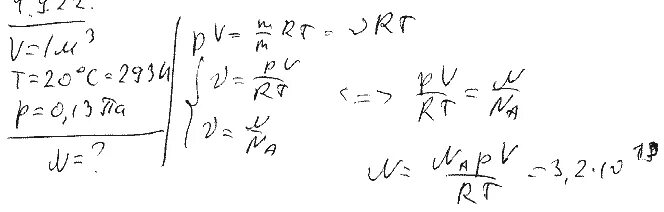 V=1м³
T=20°C=293К
p=0,13 Па
N=?
pV= m/m RT = νRT
ν= pV/RT
ν= N/N_A
<=> pV/RT = N/N_A
N= N_A pV/RT =3,2·10